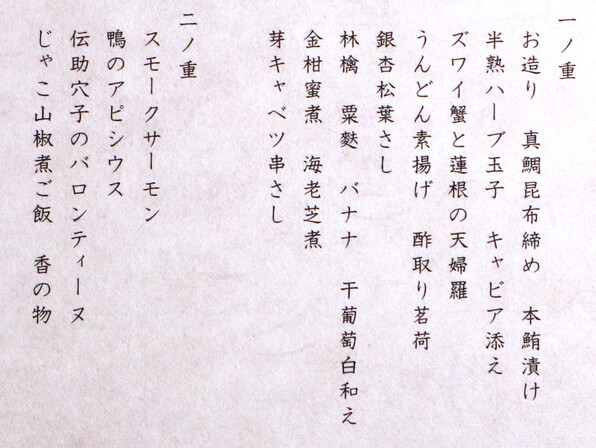 一ノ重
お造り　真鯛昆布締め　本鮪漬け
半熟ハーブ玉子　キャビア添え
ズワイ蟹と蓮根の天婦羅
うんどん素揚げ　酢取り茗荷
銀杏松葉さし
林檎　粟麩　バナナ　干葡萄白和え
金柑蜜煮　海老芝煮
芽キャベツ串さし
二ノ重
スモークサーモン
鴨のアピシウス
伝助穴子のバロンティーヌ
じゃこ山椒煮ご飯　香の物